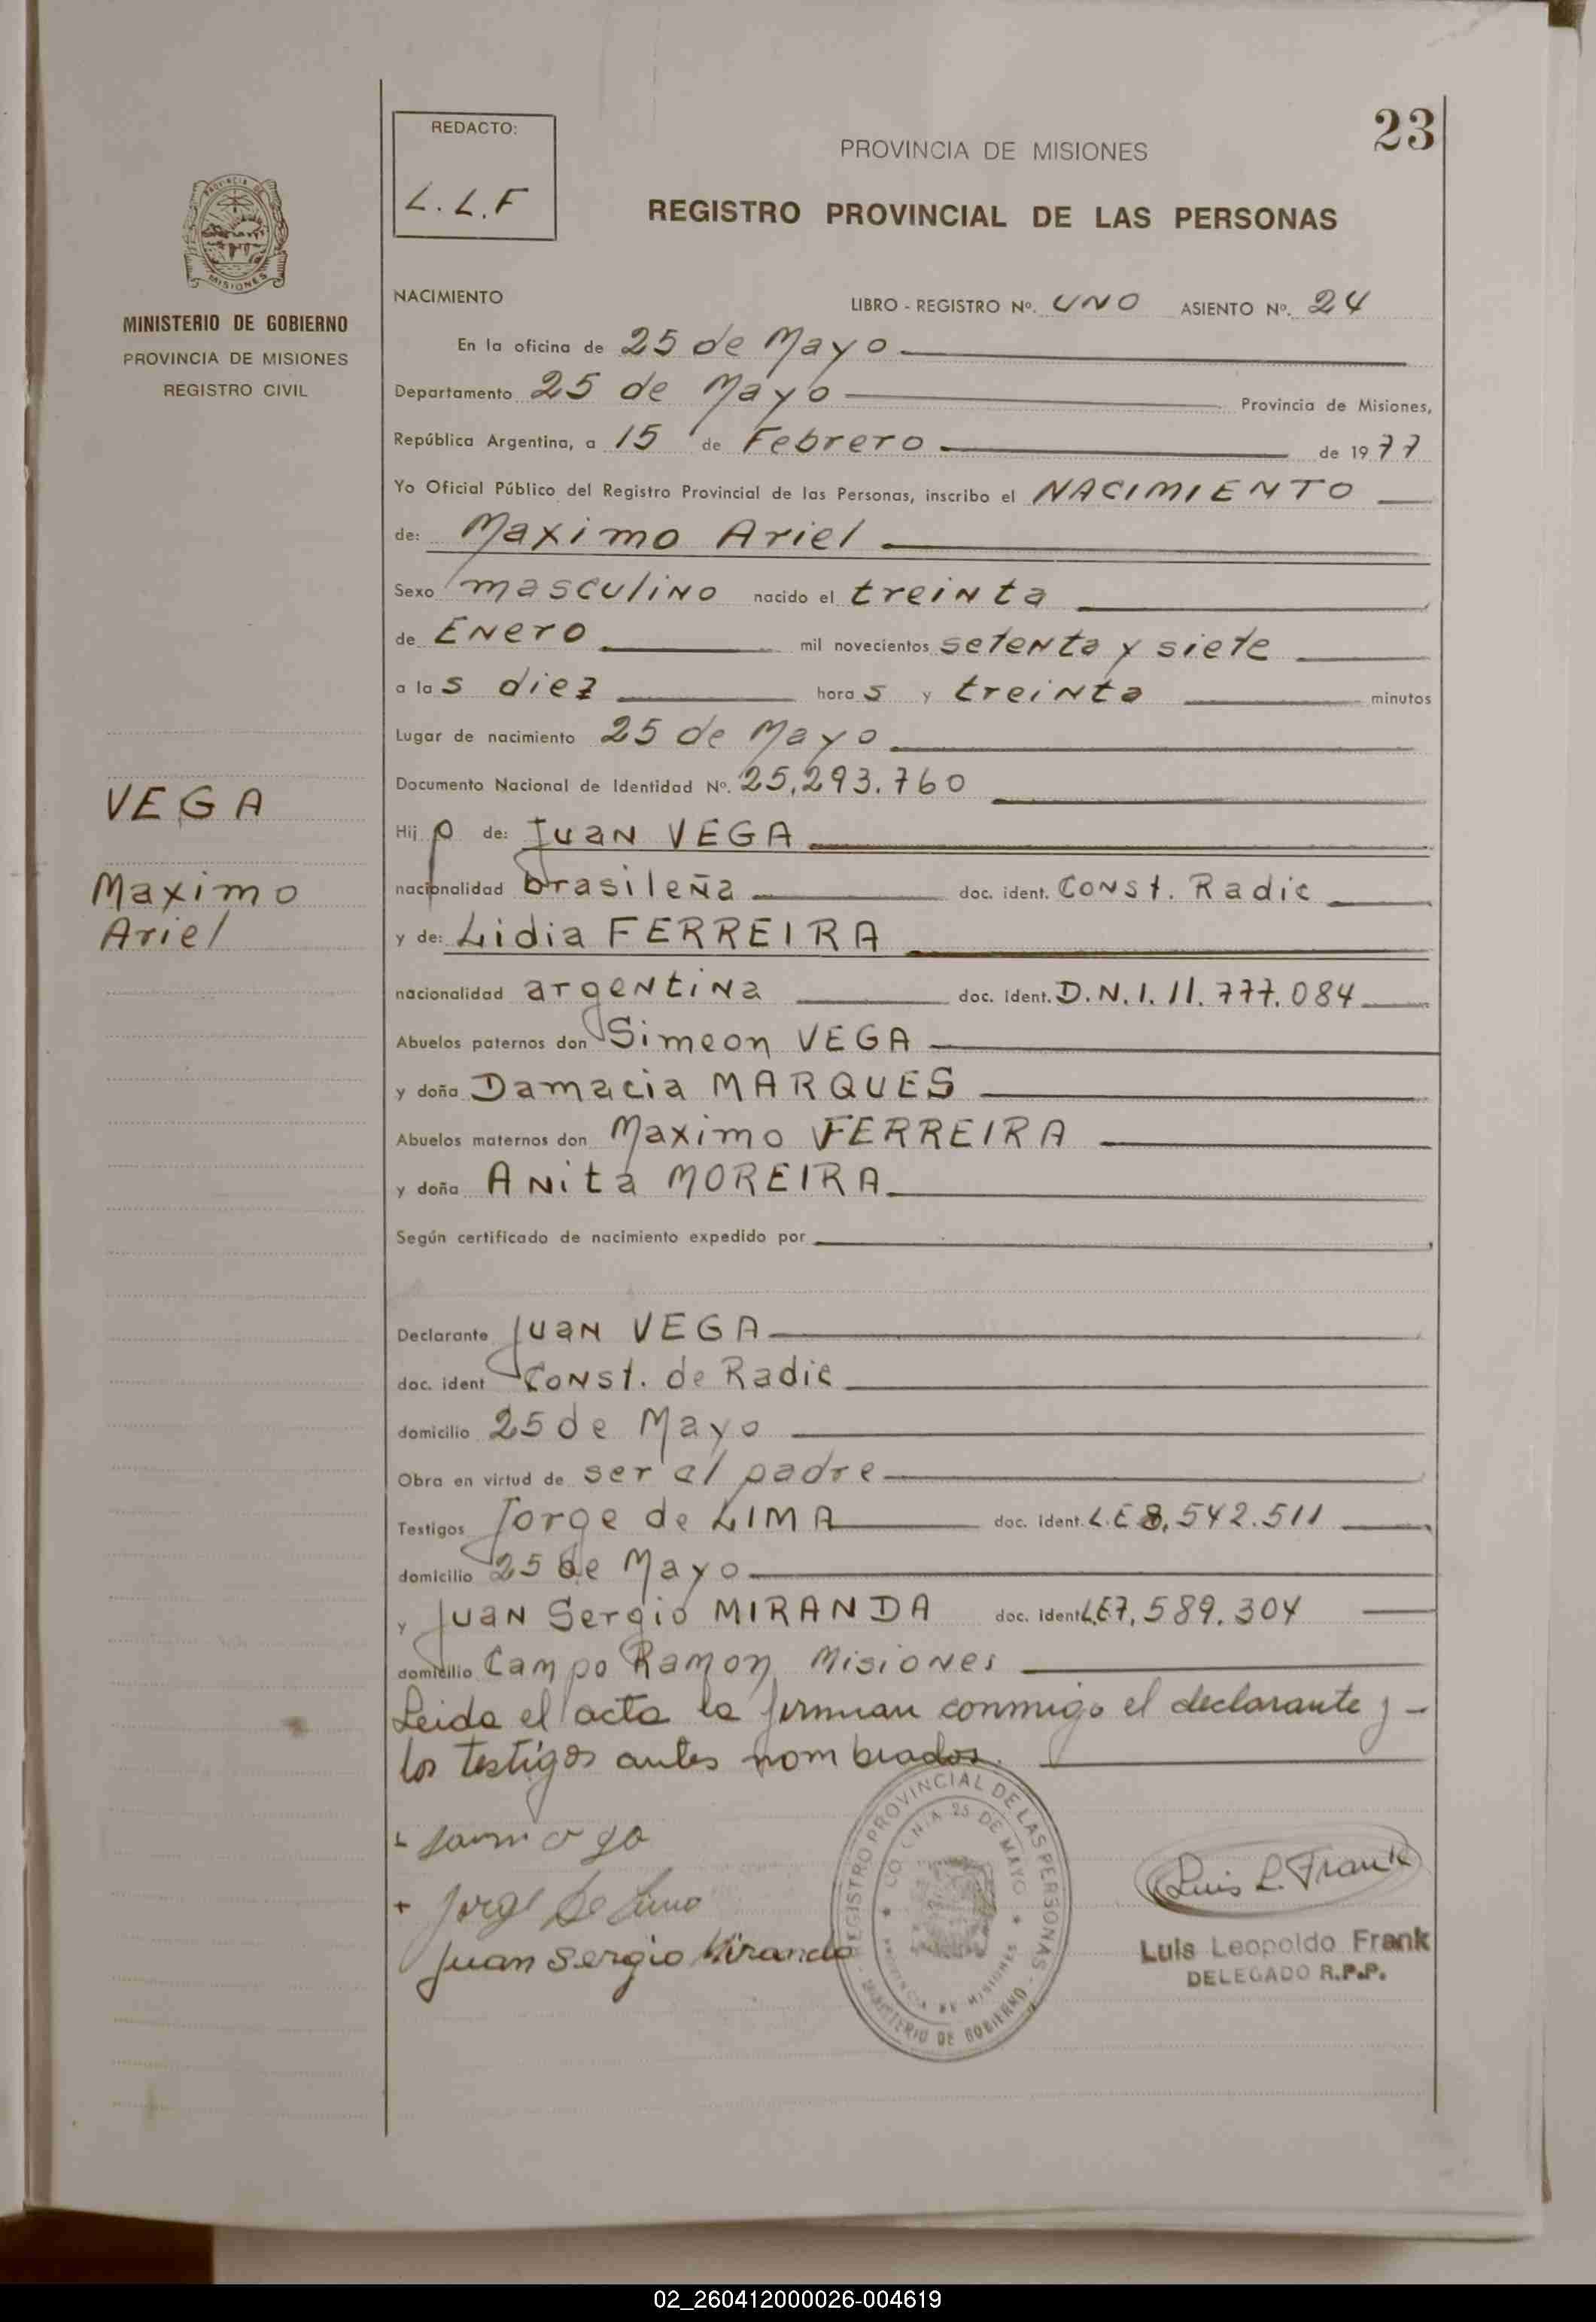 23
REDACTO:
L.L.F
PROVINCIA DE MISIONES
REGISTRO PROVINCIAL DE LAS PERSONAS
MINISTERIO DE GOBIERNO
PROVINCIA DE MISIONES
REGISTRO CIVIL
NACIMIENTO
LIBRO - REGISTRO Nº. UNO ASIENTO Nº. 24
En la oficina de 25 de Mayo
Departamento 25 de Mayo Provincia de Misiones,
República Argentina, a 15 de Febrero de 1977
Yo Oficial Público del Registro Provincial de las Personas, inscribo el NACIMIENTO
de: Maximo Ariel
Sexo masculino nacido el treinta
de Enero mil novecientos setenta y siete
a las diez horas y treinta minutos
Lugar de nacimiento 25 de Mayo
Documento Nacional de Identidad Nº. 25.293.760
VEGA
Maximo
Ariel
Hijo de: Juan VEGA
nacionalidad brasileña doc. ident. Const. Radic
y de: Lidia FERREIRA
nacionalidad argentina doc. ident. D.N.I. 11.777.084
Abuelos paternos don Simeon VEGA
y doña Damacia MARQUES
Abuelos maternos don Maximo FERREIRA
y doña Anita MOREIRA
Según certificado de nacimiento expedido por
Declarante Juan VEGA
doc. ident Const. de Radic
domicilio 25 de Mayo
Obra en virtud de ser el padre
Testigos Jorge de LIMA doc. ident. L.E 8.542.511
domicilio 25 de Mayo
y Juan Sergio MIRANDA doc. ident L.E 7.589.304
domicilio Campo Ramon Misiones
Leida el acta la firman conmigo el declarante y
los testigos antes nombrados.
Jorge De Lima
Juan Sergio Miranda
REGISTRO PROVINCIAL DE LAS PERSONAS - MINISTERIO DE GOBIERNO -
COLONIA 25 DE MAYO
PROVINCIA DE MISIONES
Luis L. Frank
Luis Leopoldo Frank
DELEGADO R.P.P.
02_260412000026-004619